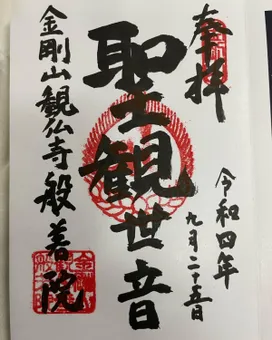 奉拝
令和四年
九月二十五日
聖観世音
金剛山観仏寺般若院